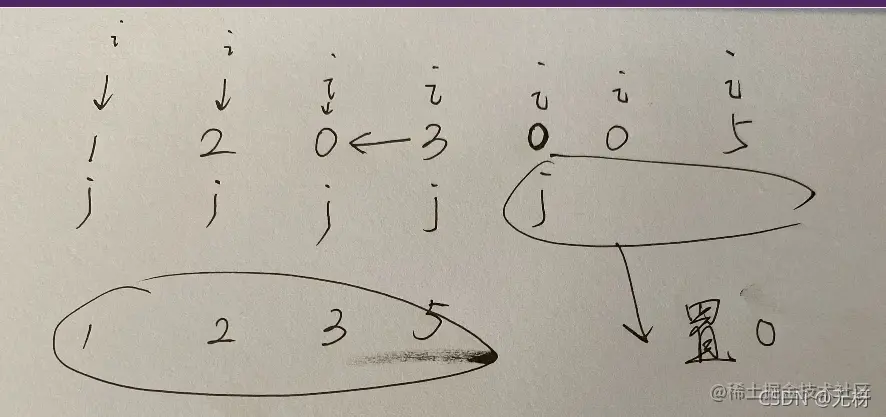 i i i i i i i
1 2 0 3 0 0 5
j j j j j
1 2 3 5
置 0
@稀土掘金技术社区
CSDN @无枒